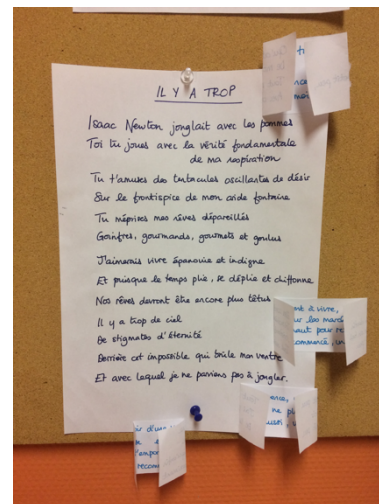 IL Y A TROP
Isaac Newton jonglait avec les pommes
Toi tu joues avec la vérité fondamentale
de ma respiration
Tu t'amuses des tentacules oscillantes de désir
Sur le frontispice de mon aride fontaine
Tu méprises mes rêves dépareillés
Goinfres, gourmands, gourmets et goulus
J'aimerais vivre épanouie et indigne
Et puisque le temps plie, se déplie et chiffonne
Nos rêves devront être encore plus têtus
Il y a trop de ciel
De stigmates d'éternité
Derrière cet impossible qui brûle mon ventre
Et avec lequel je ne parviens pas à jongler.
à vivre,
les march
haut pour re
commencé, un
ence,
ne pl
ussi, u
ir d'un
'empo
recom